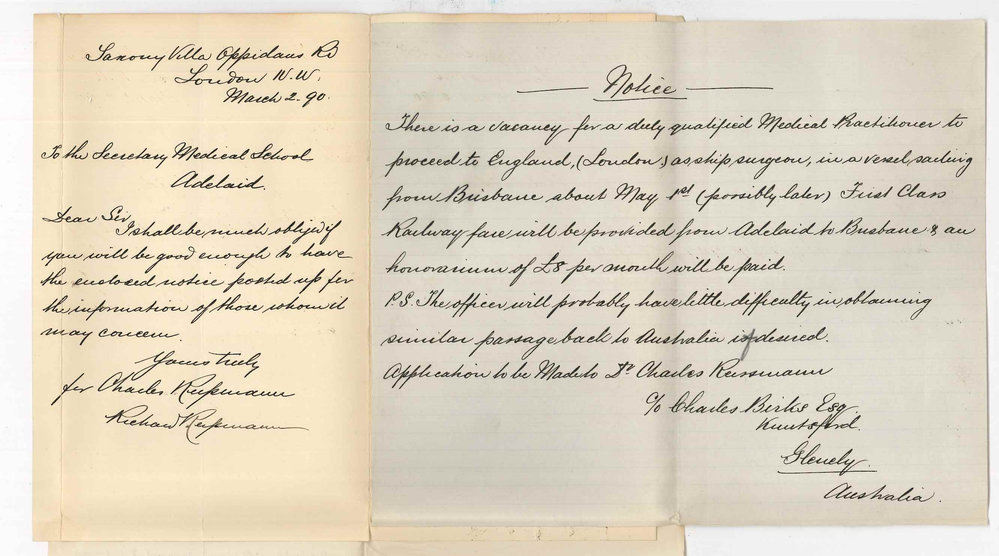 Saxony Villa Oppidans Rd
London N.W.
March 2. 90.
To the Secretary Medical School
Adelaid.
Dear Sir
I shall be much obliged if
you will be good enough to have
the enclosed notice posted up for
the information of those whom it
may concern.
Yours truly
for Charles Reissmann
Richard Reissmann
Notice
There is a vacancy for a duly qualified Medical Practitioner to
proceed to England, (London) as ship surgeon, in a vessel sailing
from Brisbane about May 1st (possibly later) First Class
Railway fare will be provided from Adelaid to Brisbane & an
honorarium of £8 per month will be paid.
P.S. The officer will probably have little difficulty in obtaining
similar passage back to Australia if desired.
Application to be Made to Dr Charles Reissmann
c/o Charles Birks Esq.
Knutsford.
Glenelg.
Australia.